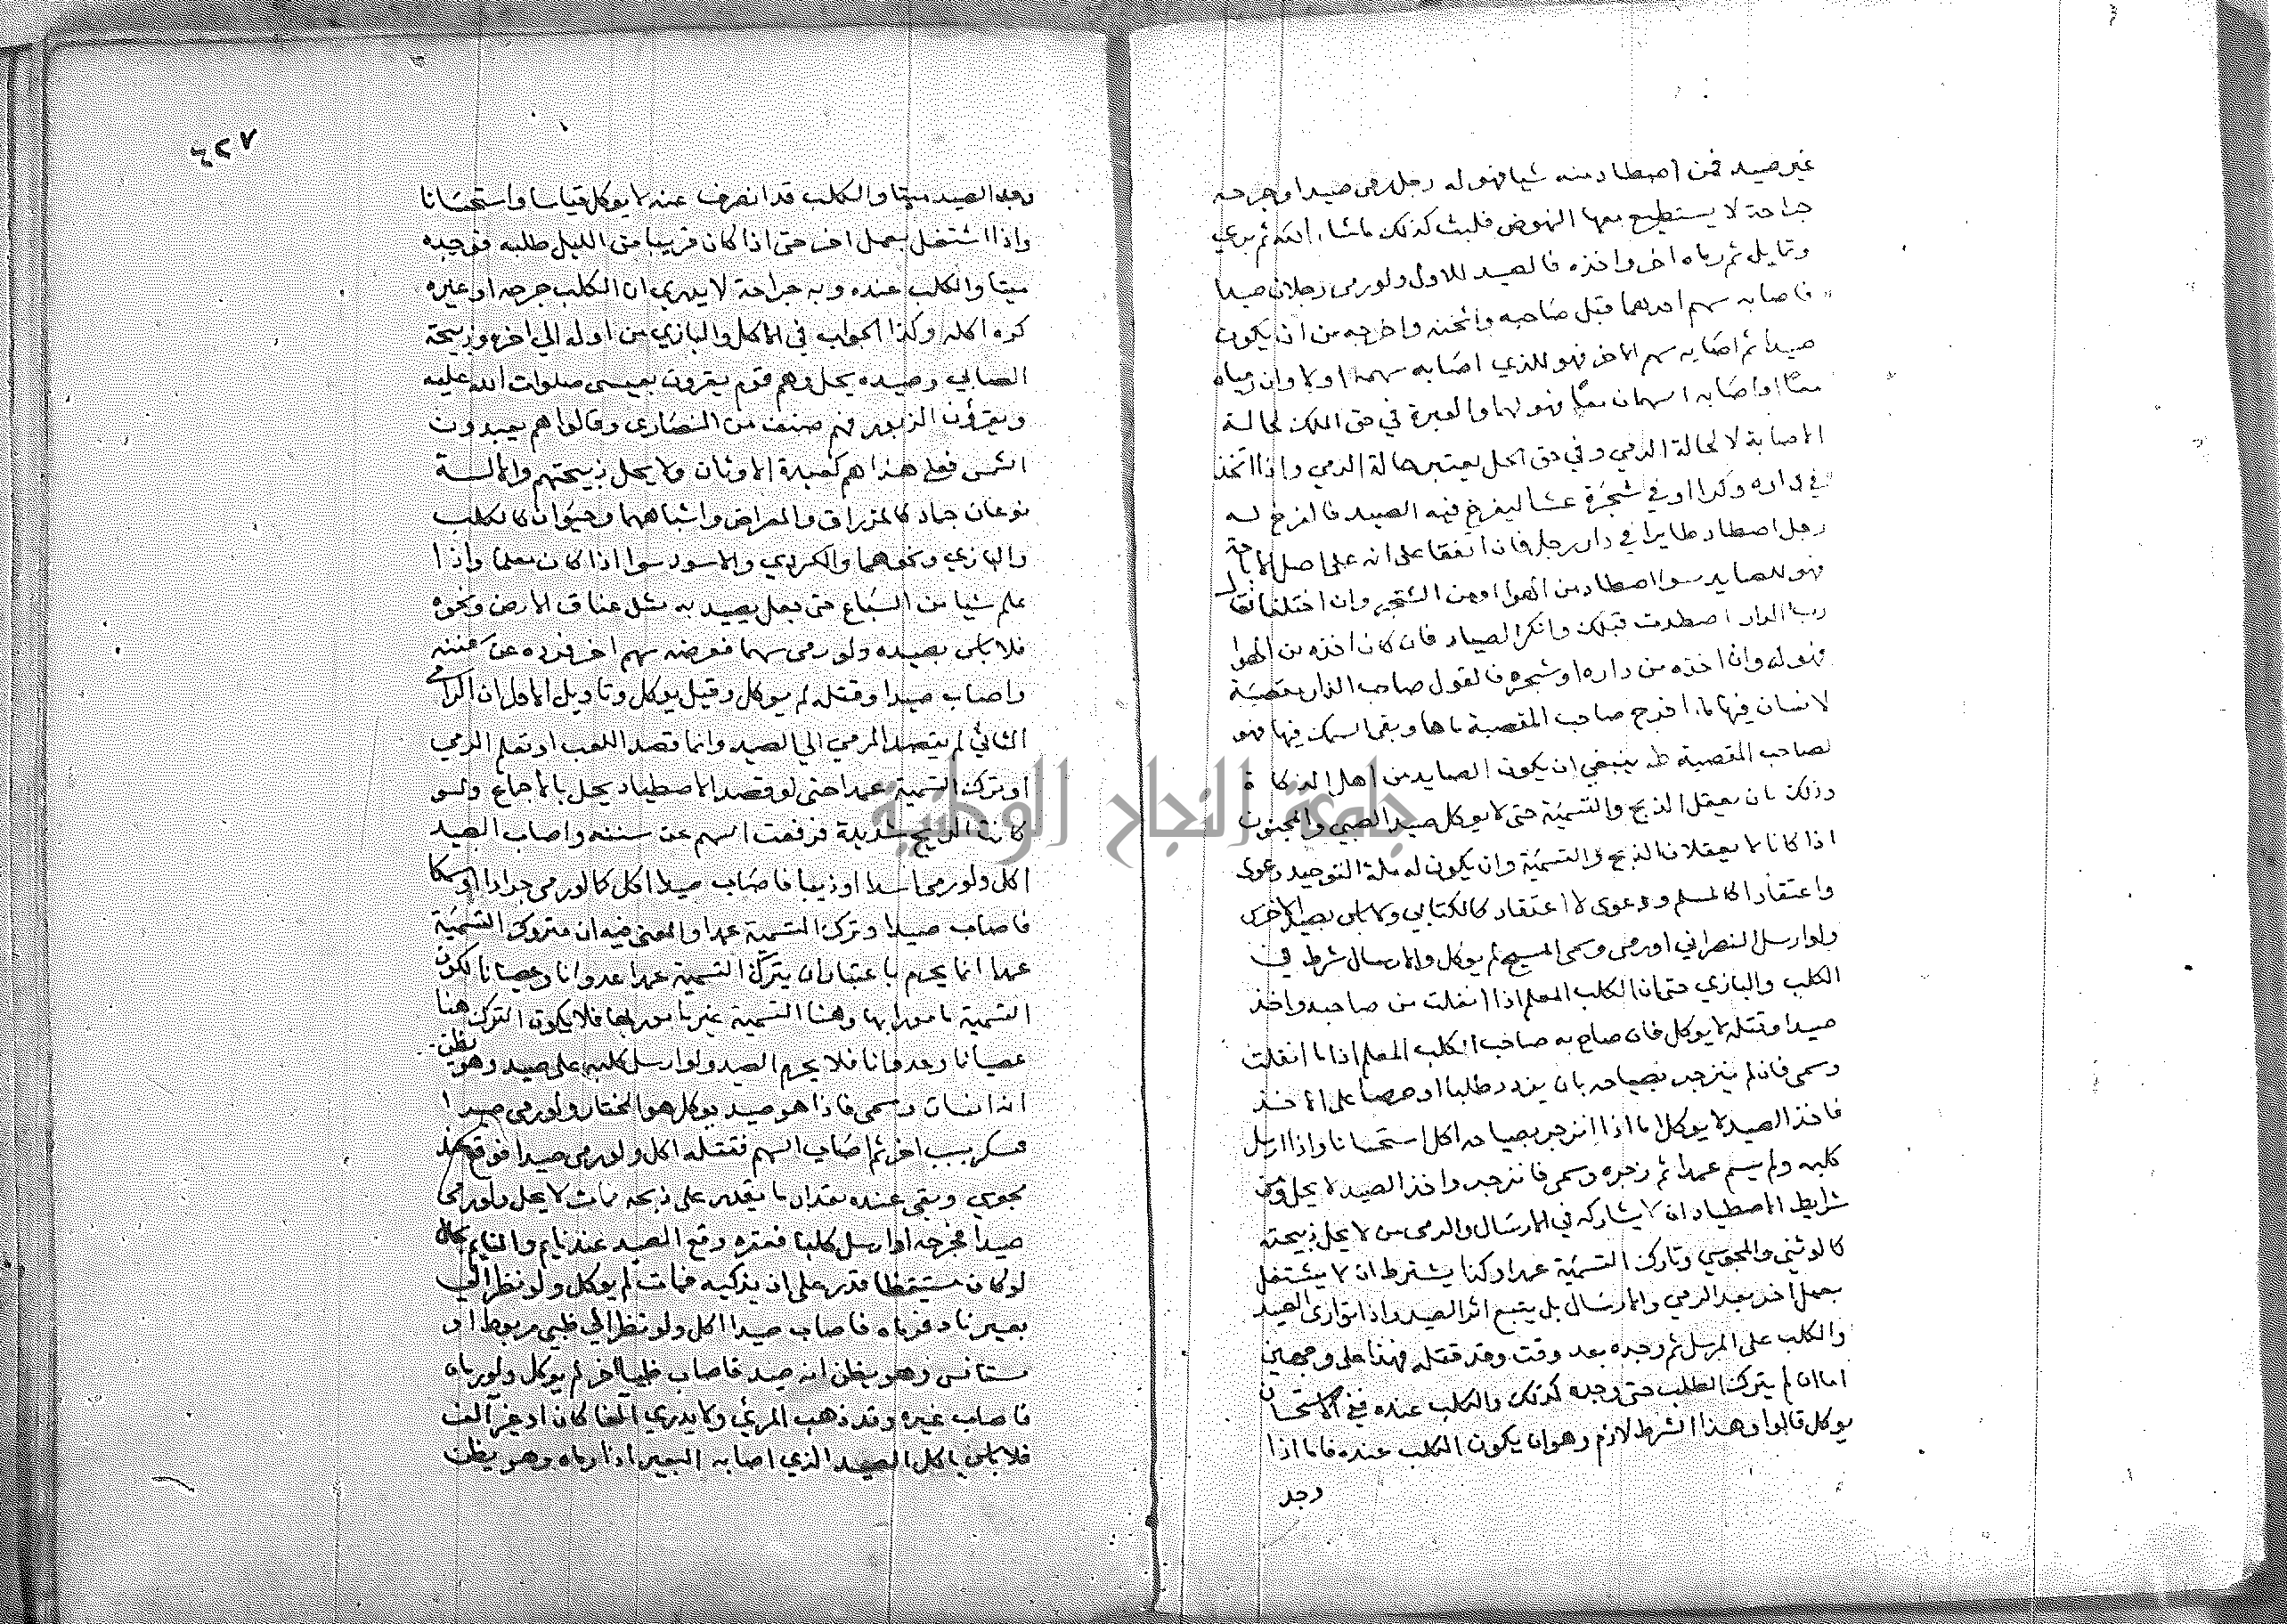 غير صيد فمن اصطاد منه شيا فهو له رجل رمى صيدا وجرحه
جراحة لا يستطيع معها النهوض فلبث كذلك ماشاء الله ثم برئ
وتمايل ثم رماه اخر واخذه فالصيد للاول ولو رمى رجلان صيدا
فاصابه سهم احدهما قبل صاحبه واثخنه واخرجه من ان يكون
صيدا ثم اصابه سهم الاخر فهو للذي اصابه سهمه اولا وان رمياه
معًا او اصابه السهمان معًا فهو لهما والعبرة في حق الملك لحالة
الاصابة لا لحالة الرمي وفي حق الحل يعتبر حالة الرمي واذا اتخذ
في داره وكرا او في شجرة عشا ليفرخ فيه الصيد فافرخ له
رجل اصطاد طايرا في دار رجل فان اتفقا على انه على اصل الاباحة
فهو للصايد سوا اصطاد من الهوا او من الشجر وان اختلفا فقال
رب الدار اصطدت قبلك وانكر الصياد فان كان اخذه من الهوا
فهو له وان اخذه من داره او شجره فالقول صاحب الدار مقصبة
لانسان فيها ماء اخرج صاحب المقصبة ماها وبقى السمك فيها فهو
لصاحب المقصبة ط ينبغي ان يكون الصايد من اهل الذكاة
وذلك بان يعقل الذبح والتسمية حتى لا يوكل صيد الصبي والمجنون
اذا كانا لا يعقلان الذبح والتسمية وان يكون له ملة التوحيد دعوى
واعتقادا كالمسلم و دعوى لا اعتقاد كالكتابي ولا باس بصيد الاخرس
ولو ارسل النصراني او رمى وسمى المسيح لم يوكل والارسال شرط في
الكلب والبازي حتى ان الكلب المعلم اذا انفلت من صاحبه واخذ
صيدا وقتله لا يوكل فان صاح به صاحب الكلب المعلم اذا ما انفلت
وسمى فان لم ينزجر بصياحه بان يزدد طلبا او حرصا على الاخذ
فاخذ الصيد لا يوكل اما اذا انزجر بصياحه اكل استحسانا واذا ارسل
كلبه ولم يسم عمدا ثم زجره وسمى فانزجر واخذ الصيد لا يحل ومن
شرايط الاصطياد ان لا يشاركه في الارسال والرمى من لا يحل ذبيحته
كالوثني والمجوسي وتارك التسمية عمدا وكذا يشترط ان لا يشتغل
بعمل اخر بعد الرمي والارسال بل يتبع اثر الصيد واذا توارى الصيد
والكلب على المرسل ثم وجده بعد وقت وقد قتله فهذا على وجهين
اما ان لم يترك الطلب حتى وجده كذلك والكلب عنده ففي الاستحسان
يوكل قالوا وهذا الشرط لازم وهو ان يكون الكلب عنده فاما اذا
وجد
٢٢٧
وجد الصيد ميتا والكلب قد انصرف عنه لا يوكل قياسا واستحسانا
واذا اشتغل بعمل اخر حتى اذا كان قريبا من الليل طلبه فوجده
ميتا والكلب عنده وبه جراحة لا يدري ان الكلب جرحه او غيره
كره اكله وكذا الجواب في الاكل والبازي من اوله الي اخره وذبيحة
الصابي وصيده يحل وهم قوم يقرون بعيسى صلوات الله عليه
ويقرؤن الزبور فهم صنف من النصارى وقالوا هم يعبدون
الشمس فعلى هذا هم كعبدة الاوثان ولا يحل ذبيحتهم والالة
نوعان جماد كالمزراق والمعراض واشباههما وحيوان كالكلب
والبازي ونحوهما والاسود سوا اذا كان معلما واذا
علم شيا من السباع حتى جعل يصيد به مثل عناق الارض ونحوه
فلا باس بصيده ولو رمى سهما فعرضه سهم اخر فرده عن سننه
واصاب صيدا وقتله لم يوكل وقيل يوكل وتاويل الاول ان الرامي
الثاني لم يقصد الرمي الي الصيد وانما قصد اللعب او تعلم الرمي
او ترك التسمية عمدا حتى لو قصد الاصطياد يحل بالاجماع ولو
كانت الريح شديدة فرفعت السهم عن سننه واصاب الصيد
اكل ولو رمى اسدا او ذيبا فاصاب صيدا اكل كما لو رمى جرادا او سمكا
فاصاب صيدا وترك التسمية عمدا والمعنى فيه ان متروك التسمية
عمدا انما يحرم باعتبار ان يترك التسمية عمدا عدوانا وعصيانا لكون
التسمية مامورا بها وهنا التسمية غير مامور بها فلا يكون الترك هنا
عصيانا وعدوانا فلا يحرم الصيد ولو ارسل كلبه على صيد وهو يظن
انه انسان وسمى فاذا هو صيد يوكل هو المختار ولو رمى صيدا
بسبب اخر ثم اصاب السهم فقتله اكل ولو رمى صيدا فوقع عند
مجوسي وبقى عنده مقدار ما يقدر على ذبحه مات لا يحل ولو رمى
صيدا فجرحه او ارسل كلبا فعقره وقع الصيد عند نايم والنايم بحال
لو كان مستيقظا قدر على ان يذكيه فمات لم يوكل ولو نظر الي
بعير ناد فرماه فاصاب صيدا اكل ولو نظر الي ظبي مربوط او
مستانس وهو يظن انه صيد فاصاب ظبيا اخر لم يوكل ولو رماه
فاصاب غيره وقد ذهب المرمي ولا يدري الفا كان او غير الف
فلا باس باكل الصيد الذي اصابه البعير اذا رماه وهو يظن
جامعة النجاح الوطنية